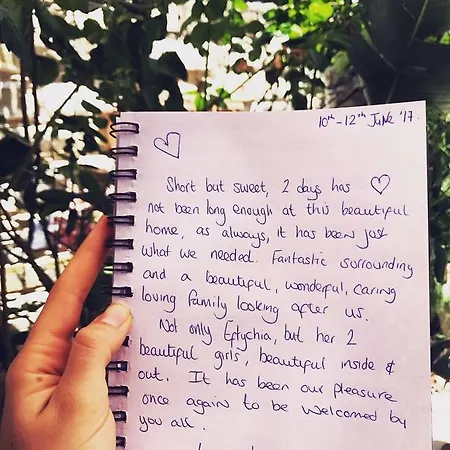 10th - 12th June '17.
Short but sweet, 2 days has
not been long enough at this beautiful
home, as always, it has been just
what we needed. Fantastic surrounding
and a beautiful, wonderful, caring
loving family looking after us.
Not only Eftychia, but her 2
beautiful girls, beautiful inside &
out. It has been our pleasure
once again to be welcomed by
you all.